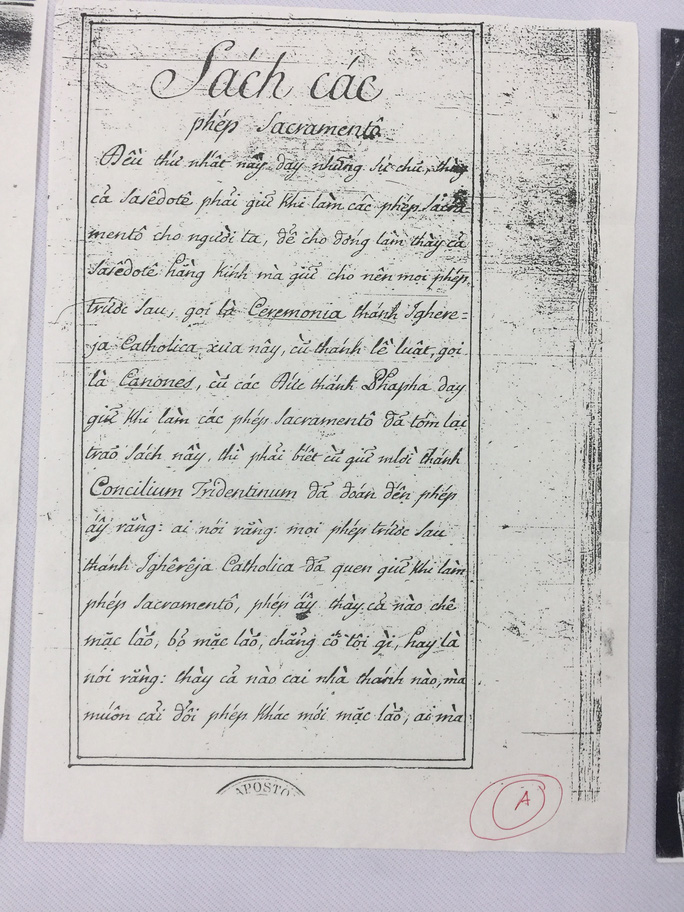 Sách các
phép Sacramentô
Đều thứ nhất nầy dạy những sự chư, thầy
cả Saśêdotê phải giữ khi làm các phép Sacra-
mentô cho người ta, để cho đấng làm thầy cả
Saśêdotê hằng kính mà giữ cho nên mọi phép
trước sau, gọi là Ceremonia thánh Jghere-
ja Catholica xưa nầy, cù thánh lề luật, gọi
là Canones, cù các Đức thánh Phapha dạy
giữ khi làm các phép Sacramentô đã tóm lại
traõ sách nầy, thì phải biết cù giữ mlời thánh
Concilium Tridentinum đã đoán đến phép
ấy rằng: ai nói rằng: mọi phép trước sau
thánh Jghêrêja Catholica đã quen giữ khi làm
phép Sacramentô, phép ấy thầy cả nào chê
mặc laõ, bỏ mặc laõ, chẳng có tội gì, hay là
nói rằng: thầy cả nào cai nhà thánh nào, mà
muốn cải đổi phép khác mới mặc laõ, ai mà
APOSTO
A